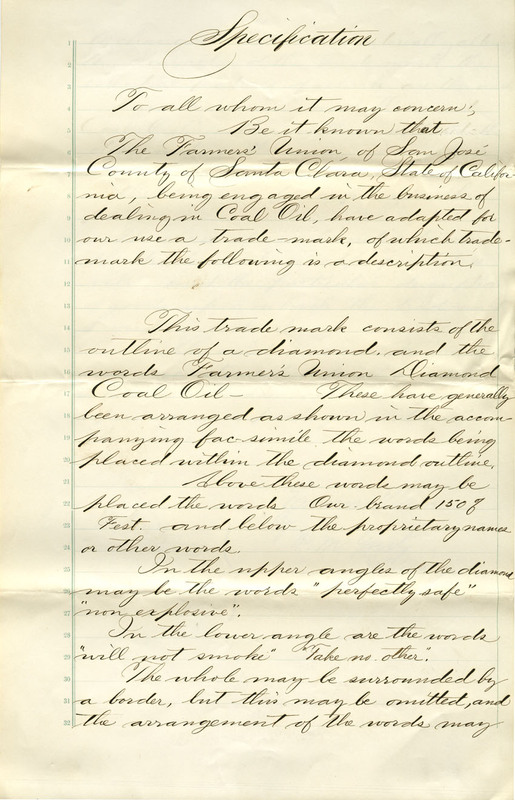 Specification
To all whom it may concern;
Be it known that
The Farmers' Union, of San José
County of Santa Clara, State of Califor-
nia, being engaged in the business of
dealing in Coal Oil, have adapted for
our use a trade mark, of which trade-
mark the following is a description.
This trade mark consists of the
outline of a diamond, and the
words Farmer's Union Diamond
Coal Oil - These have generally
been arranged as shown in the accom-
panying fac-simile the words being
placed within the diamond outline.
Above these words may be
placed the words Our brand 150°
Fest. and below the proprietary names
or other words.
In the upper angles of the diamond
may be the words "perfectly safe"
"non explosive".
In the lower angle are the words
"will not smoke" "Take no other".
The whole may be surrounded by
a border, but this may be omitted, and
the arrangement of the words may